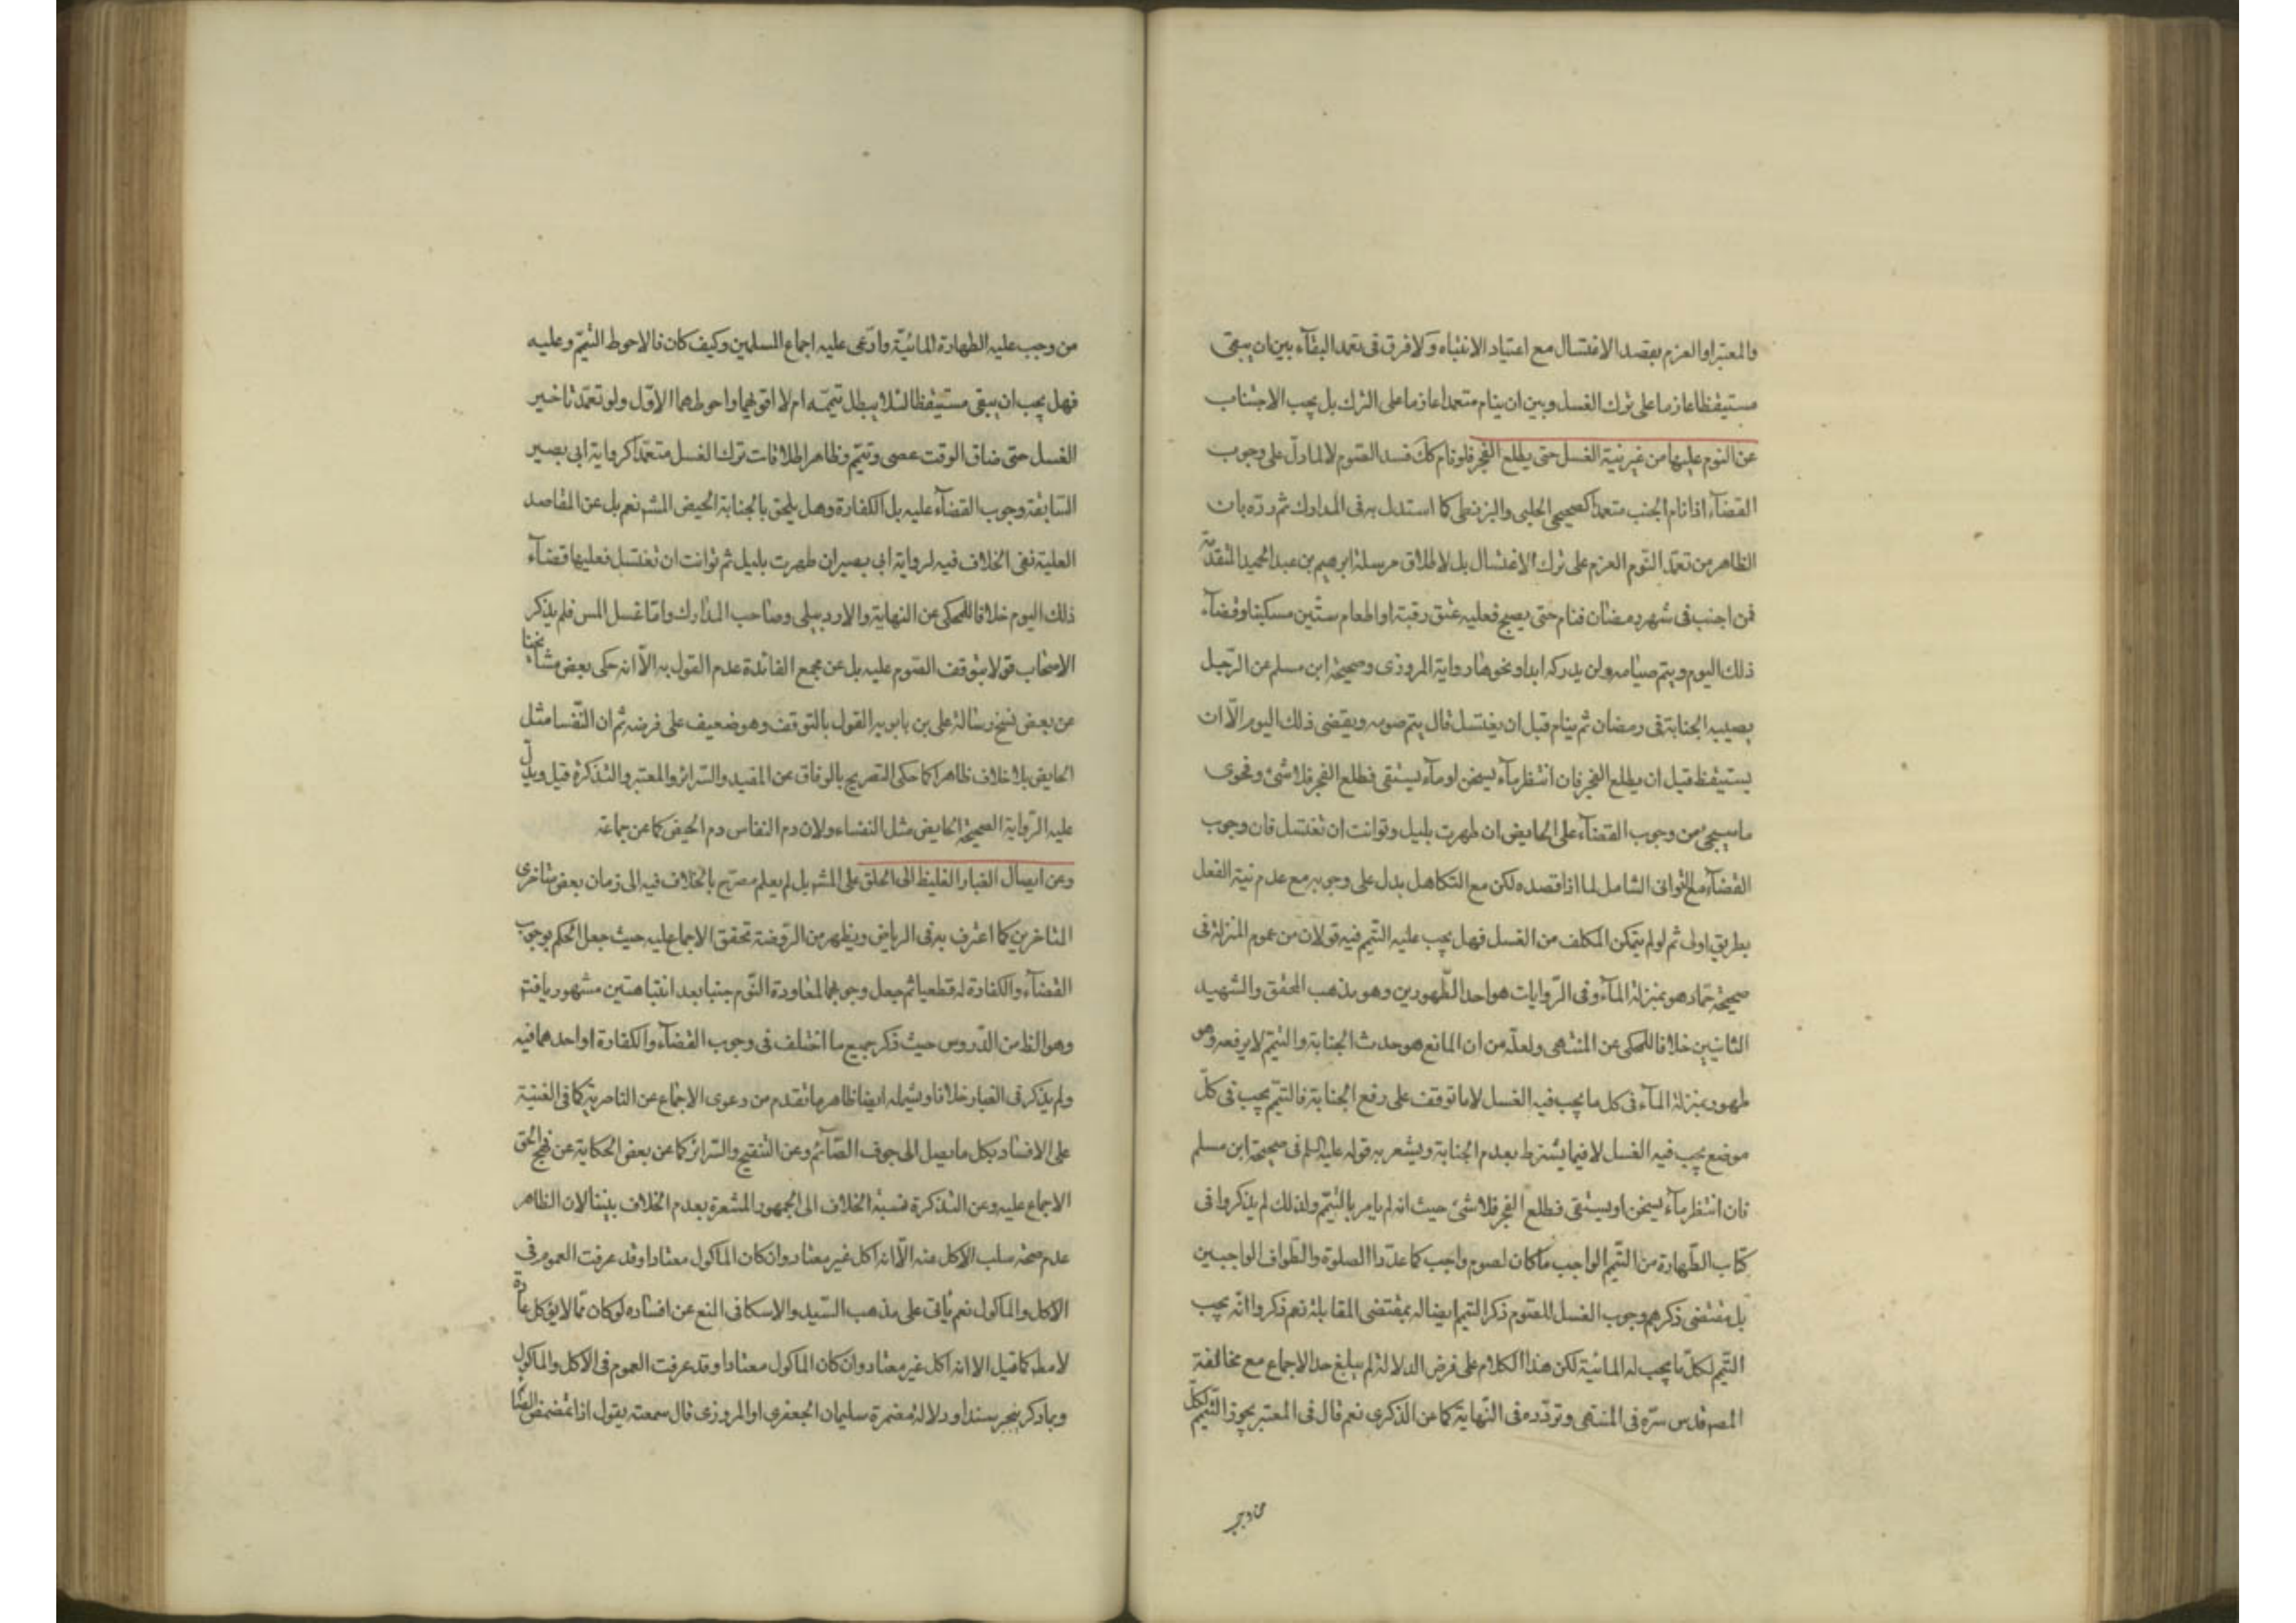 والمعتبر او العزم بقصد الاغتسال مع اعتياد الانتباه ولا فرق فى تعمد البقآء بين ان يبقى
مستيقظا عازما على ترك الغسل وبين ان ينام متعمدا عازما على الترك بل يجب الاجتناب
عن النوم عليها من غير نية الغسل حتى يطلع الفجر فلو نام كك فسد الصوم لا لما دل على وجوب
القضآء اذا نام الجنب متعمدا كصحيحى الحلبى والبزنطى كما استدل به فى المدارك ثم ردّه بان
الظاهر من تعمّد النوم العزم على ترك الاغتسال بل لاطلاق مرسلة ابرهيم بن عبد الحميد المتقدمة
فمن اجنب فى شهر رمضان فنام حتى يصبح فعليه عتق رقبة او اطعام ستّين مسكينا وقضآء
ذلك اليوم ويتم صيامه ولن يدركه ابدا ونحوها رواية المروزى وصحيحة ابن مسلم عن الرّجل
يصيبه الجنابة فى رمضان ثم ينام قبل ان يغتسل قال يتم صومه ويقضى ذلك اليوم الّا ان
يستيقظ قبل ان يطلع الفجر فان انتظر مآء يسخن او مآء يستقى فطلع الفجر فلا شئ وفحوى
ما سيجئ من وجوب القضآء على الحايض ان طهرت بليل وتوانت ان تغتسل فان وجوب
القضآء مع التوانى الشامل لما اذا قصده لكن مع التكاهل يدل على وجوبه مع عدم نية الفعل
بطريق اولى ثم لو لم يتمكن المكلف من الغسل فهل يجب عليه التيمم فيه قولان من عموم المنزلة فى
صحيحة حماد هو بمنزلة المآء وفى الرّوايات هو احد الطّهورين وهو مذهب المحقق والشهيد
الثانيين خلافا للمحكى عن المنتهى ولعلّه من ان المانع هو حدث الجنابة والتيمّم لا يرفعه وهو
طهور بمنزلة المآء فى كل ما يجب فيه الغسل لا ما توقف على رفع الجنابة فالتيمّم يجب فى كلّ
موضع يجب فيه الغسل لا فيما يشترط بعدم الجنابة ويشعر به قوله عليه السلم فى صحيحة ابن مسلم
فان انتظر مآء يسخن او يستقى فطلع الفجر فلا شئ حيث انه لم يامر بالتيمّم ولذلك لم يذكروا فى
كتاب الطّهارة من التيمم الواجب ما كان لصوم واجب كما عدّدوا الصلوة والطّواف الواجبين
بل مقتضى ذكرهم وجوب الغسل للصّوم ذكر التيمم ايضا له بمقتضى المقابلة نعم ذكروا انّه يجب
التيمم لكلّ ما يجب له المائية لكن هذا الكلام على فرض الدلالة لم يبلغ حد الاجماع مع مخالفة
المصه قدس سرّه فى المنتهى وتردّده فى النّهاية كما عن الذكرى نعم قال فى المعتبر يجوز التيمّم لكلّ
من وجب عليه الطهارة المائيّة وادّعى عليه اجماع المسلمين وكيف كان فالاحوط التيمّم وعليه
فهل يجب ان يبقى مستيقظا لئلا يبطل تيمّمه ام لا اقويهما واحوطهما الاوّل ولو تعمّد تاخير
الغسل حتى ضاق الوقت عصى وتيمّم وظاهر اطلاقات ترك الغسل متعمّدا كرواية ابى بصير
السّابقة وجوب القضآء عليه بل الكفارة وهل يلحق بالجنابة الحيض المشه نعم بل عن المقاصد
العلية نفى الخلاف فيه لرواية ابى بصير ان طهرت بليل ثم توانت ان تغتسل فعليها قضآء
ذلك اليوم خلافا للمحكى عن النهاية والاردبيلى وصاحب المدارك وامّا غسل المس فلم يذكر
الاصحاب قولا بتوقف الصّوم عليه بل عن مجمع الفائدة عدم القول به الّا انه حكى بعض مشايخنا
عن بعض نسخ رسالة على بن بابويه القول بالتوقف وهو ضعيف على فرضه ثم ان النّفسا مثل
الحايض بلا خلاف ظاهرا كما حكى التصريح بالوفاق عن المفيد والسّرائر والمعتبر والتذكرة قيل ويدلّ
عليه الرّواية الصحيحة الحايض مثل النفساء ولان دم النفاس دم الحيض كما عن جماعة
وعن ايصال الغبار الغليظ الى الحلق على المشه بل لم يعلم مصرّح بالخلاف فيه الى زمان بعض متاخرى
المتاخرين كما اعترف به فى الرياض ويظهر من الرّوضة تحقق الاجماع عليه حيث جعل الحكم بوجوب
القضآء والكفارة له قطعيا ثم جعل وجوبهما لمعاودة النّوم جنبا بعد انتباهتين مشهوريا فتم
وهو الظ من الدّروس حيث ذكر جميع ما اختلف فى وجوب القضآء والكفارة او احدهما فيه
ولم يذكر فى الغبار خلافا ويشمله ايضا ظاهر ما تقدم من دعوى الاجماع عن الناصرية كما فى الغنية
على الافساد بكل ما يصل الى جوف الصّائم وعن التنقيح والسّرائر كما عن بعض الحكاية عن نهج الحق
الاجماع عليه وعن التذكرة نسبة الخلاف الى الجمهور المشعرة بعدم الخلاف بيننا لان الظاهر
عدم صحة سلب الاكل عنه الّا انه اكل غير معتاد وان كان الماكول معتادا وقد عرفت العموم فى
الاكل والماكول نعم ياتى على مذهب السّيد والاسكافى المنع عن افساده لو كان ممّا لا يؤكل عادة
لا مط كما قيل الا انه اكل غير معتاد وان كان الماكول معتادا وقد عرفت العموم فى الاكل والماكول
وبما ذكر ينجبر سندا ودلالة مضمرة سليمان الجعفرى او المروزى قال سمعته يقول اذا تمضمض الصّا